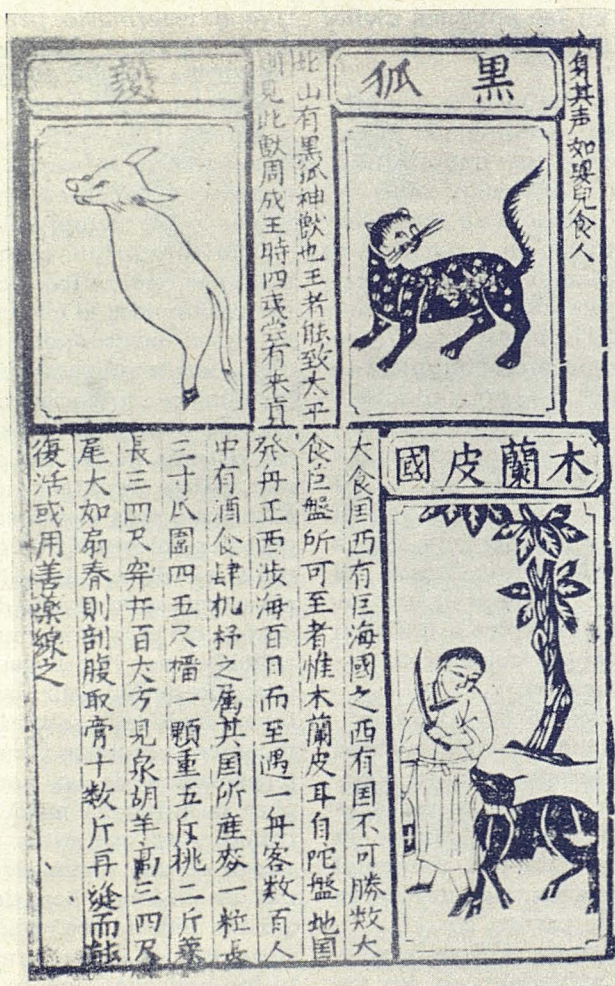 身其声如嬰兒食人
黑狐
此山有黑狐神獸也王者能致太平
則見此獸周成王時四夷嘗有来貢
夔
木蘭皮國
大食国西有巨海國之西有国不可勝数大
食巨盤所可至者惟木蘭皮耳自陀盤地国
發舟正西涉海百日而至遇一舟客数百人
中有酒食肆机杼之属其国所産麥一粒長
三寸瓜圍四五尺榴一顆重五斤桃二斤菜
長三四尺穿井百丈方見泉胡羊高三四尺
尾大如扇春則剖腹取膏十数斤再縫而能
復活或用善藥線之